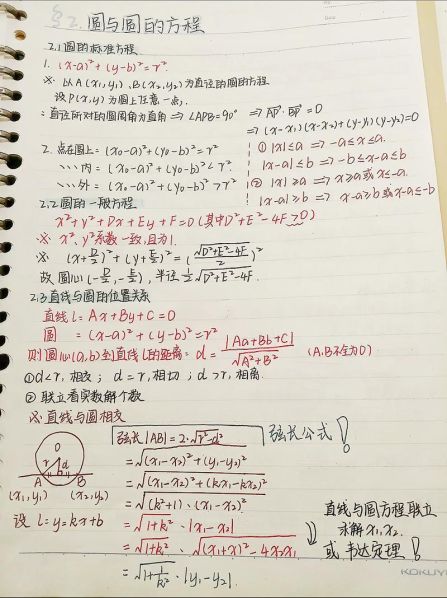 §2. 圆与圆的方程
2.1 圆的标准方程
1. (x-a)²+(y-b)²=r².
※ 以A(x₁,y₁)、B(x₂,y₂)为直径的圆的方程
设P(x,y)为圆上任意一点.
直径所对的圆周角为直角 ⇒ ∠APB=90° ⇒ AP·BP=0
⇒ (x-x₁)(x-x₂)+(y-y₁)(y-y₂)=0
2. 点在圆上=(x₀-a)²+(y₀-b)²=r²
、、、内=(x₀-a)²+(y₀-b)²<r².
、、、外=(x₀-a)²+(y₀-b)²>r².
① |x|≤a ⇒ -a≤x≤a.
|x-a|≤b ⇒ -b≤x-a≤b
② |x|≥a ⇒ x≥a或x≤-a.
|x-a|≥b ⇒ x-a≥b或x-a≤-b
2.2 圆的一般方程
x²+y²+Dx+Ey+F=0(其中D²+E²-4F>0)
※ x²、y²系数一致,且为1.
※ (x+D/2)²+(y+E/2)²=(√(D²+E²-4F)/2)²
故圆心(-D/2,-E/2),半径½√(D²+E²-4F).
2.3 直线与圆的位置关系
直线l=Ax+By+C=0
圆 =(x-a)²+(y-b)²=r²
则圆心(a,b)到直线l的距离: d=|Aa+Bb+C|/√(A²+B²) (A,B不全为0)
① d<r,相交; d=r,相切; d>r,相离.
② 联立看实数解个数
※ 直线与圆相交
O
r d
A B
(x₁,y₁) (x₂,y₂)
设 l=y=kx+b
弦长|AB|=2·√(r²-d²)
弦长公式!
=√((x₁-x₂)²+(y₁-y₂)²)
=√((x₁-x₂)²+(kx₁-kx₂)²)
=√((k²+1)·(x₁-x₂)²)
=√(1+k²)·|x₁-x₂|
=√(1+k²)·√((x₁+x₂)²-4x₂x₁)
=√(1+1/k²)·|y₁-y₂|.
直线与圆方程联立
求解x₁,x₂.
或 韦达定理!
KOKUYO